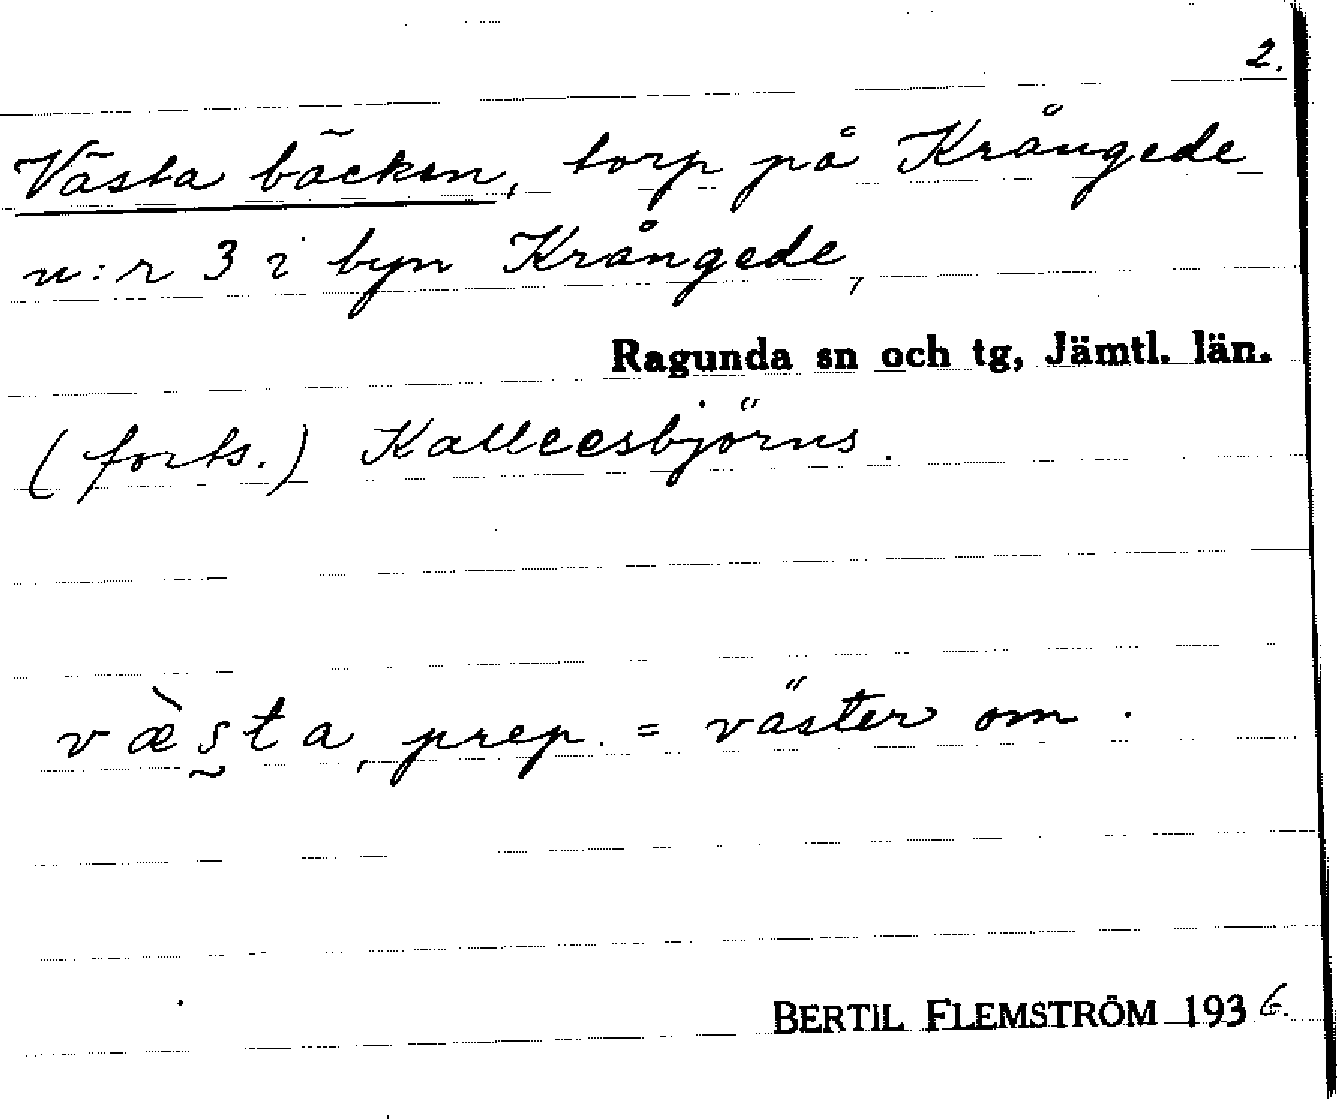 2.
Västa bäcken, torp på Krångede
n:r 3 i byn Krångede,
Ragunda sn och tg, Jämtl. län.
(forts.) Kalleesbjörns.
væ̀s̰ta, prep. = väster om.
BERTIL FLEMSTRÖM 1936.